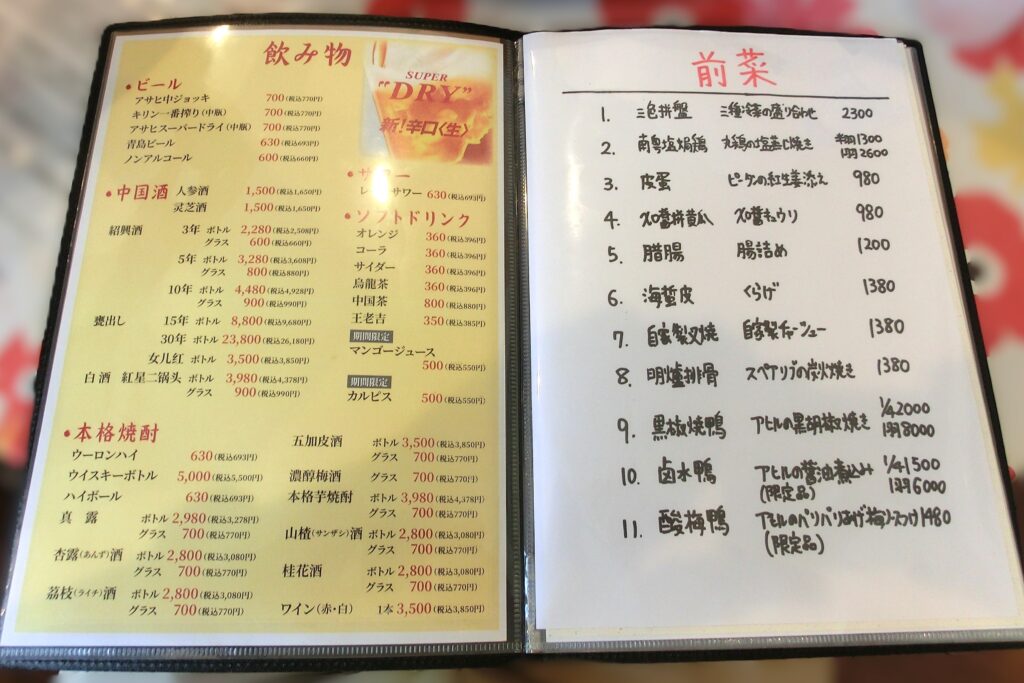 飲み物
SUPER
"DRY"
新!辛口〈生〉
・ビール
アサヒ中ジョッキ 700(税込770円)
キリン一番搾り(中瓶) 700(税込770円)
アサヒスーパードライ(中瓶) 700(税込770円)
青島ビール 630(税込693円)
ノンアルコール 600(税込660円)
・中国酒 人参酒 1,500(税込1,650円)
灵芝酒 1,500(税込1,650円)
紹興酒 3年 ボトル 2,280(税込2,508円)
グラス 600(税込660円)
5年 ボトル 3,280(税込3,608円)
グラス 800(税込880円)
10年 ボトル 4,480(税込4,928円)
グラス 900(税込990円)
甕出し 15年 ボトル 8,800(税込9,680円)
30年 ボトル 23,800(税込26,180円)
女儿红 ボトル 3,500(税込3,850円)
白酒 紅星二锅头 ボトル 3,980(税込4,378円)
グラス 900(税込990円)
サワー 630(税込693円)
・ソフトドリンク
オレンジ 360(税込396円)
コーラ 360(税込396円)
サイダー 360(税込396円)
烏龍茶 360(税込396円)
中国茶 800(税込880円)
王老吉 350(税込385円)
期間限定
マンゴージュース
500(税込550円)
期間限定
カルピス 500(税込550円)
・本格焼酎
ウーロンハイ 630(税込693円)
ウイスキーボトル 5,000(税込5,500円)
ハイボール 630(税込693円)
真露 ボトル 2,980(税込3,278円)
グラス 700(税込770円)
杏露(あんず)酒 ボトル 2,800(税込3,080円)
グラス 700(税込770円)
茘枝(ライチ)酒 ボトル 2,800(税込3,080円)
グラス 700(税込770円)
五加皮酒 ボトル 3,500(税込3,850円)
グラス 700(税込770円)
濃醇梅酒 グラス 700(税込770円)
本格芋焼酎 ボトル 3,980(税込4,378円)
グラス 700(税込770円)
山楂(サンザシ)酒 ボトル 2,800(税込3,080円)
グラス 700(税込770円)
桂花酒 ボトル 2,800(税込3,080円)
グラス 700(税込770円)
ワイン(赤・白) 1本 3,500(税込3,850円)
前菜
1. 三色拼盤 三種冷菜の盛り合わせ 2300
2. 南粤塩焗鶏 丸鶏の塩蒸し焼き 半羽1300
1羽2600
3. 皮蛋 ピータンの紅生姜添え 980
4. 拼黄瓜 キュウリ 980
5. 腊腸 腸詰め 1200
6. 海蜇皮 くらげ 1380
7. 自製叉焼 自家製チャーシュー 1380
8. 明爐排骨 スペアリブの炭火焼き 1380
9. 黒椒焼鴨 アヒルの黒胡椒焼き 1/4 2000
1羽8000
10. 卤水鴨 アヒルの醤油煮込み 1/4 1500
(限定品) 1羽6000
11. 酸梅鴨 アヒルのパリパリあげ梅ソースつけ 1480
(限定品)